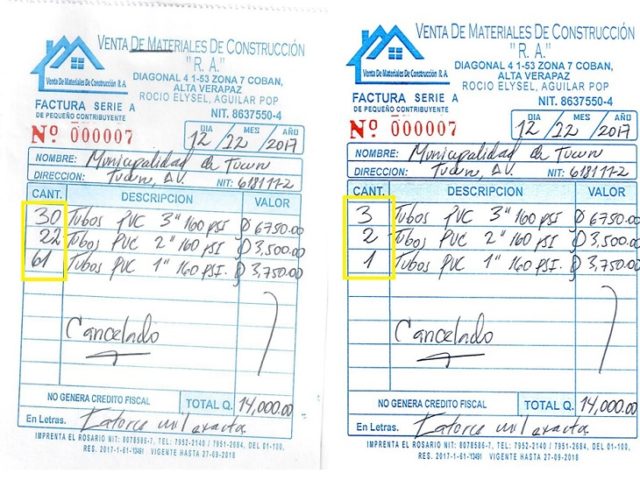 VENTA DE MATERIALES DE CONSTRUCCIÓN
"R. A."
DIAGONAL 4 1-53 ZONA 7 COBAN,
ALTA VERAPAZ
ROCIO ELYSEL, AGUILAR POP
NIT. 8637550-4
Venta De Materiales De Construcción R.A.
FACTURA SERIE A
DE PEQUEÑO CONTRIBUYENTE
Nº 000007
DIA MES AÑO
12 12 2017
NOMBRE: Municipalidad de Tucuru
DIRECCION: Tucuru, A.V. NIT: 618111-2
CANT. DESCRIPCION VALOR
30 Tubos PVC 3" 160 PSI Q 6750.00
22 Tubos PVC 2" 160 PSI Q 3,500.00
61 Tubos PVC 1" 160 PSI. Q 3,750.00
Cancelado
NO GENERA CREDITO FISCAL TOTAL Q. 14,000.00
En Letras. Catorce mil exactos
IMPRENTA EL ROSARIO NIT: 8078586-7, TEL: 7952-2140 / 7951-2684, DEL 01-100,
REG. 2017-1-61-13481 VIGENTE HASTA 27-09-2018
VENTA DE MATERIALES DE CONSTRUCCIÓN
"R. A."
DIAGONAL 4 1-53 ZONA 7 COBAN,
ALTA VERAPAZ
ROCIO ELYSEL, AGUILAR POP
NIT. 8637550-4
Venta De Materiales De Construcción R.A.
FACTURA SERIE A
DE PEQUEÑO CONTRIBUYENTE
Nº 000007
DIA MES AÑO
12 12 2017
NOMBRE: Municipalidad de Tucuru
DIRECCION: Tucuru, A.V. NIT: 618111-2
CANT. DESCRIPCION VALOR
3 Tubos PVC 3" 160 PSI Q 6750.00
2 Tubos PVC 2" 160 PSI Q 3,500.00
1 Tubos PVC 1" 160 PSI. Q 3,750.00
Cancelado
NO GENERA CREDITO FISCAL TOTAL Q. 14,000.00
En Letras. Catorce mil exactos
IMPRENTA EL ROSARIO NIT: 8078586-7, TEL: 7952-2140 / 7951-2684, DEL 01-100,
REG. 2017-1-61-13481 VIGENTE HASTA 27-09-2018